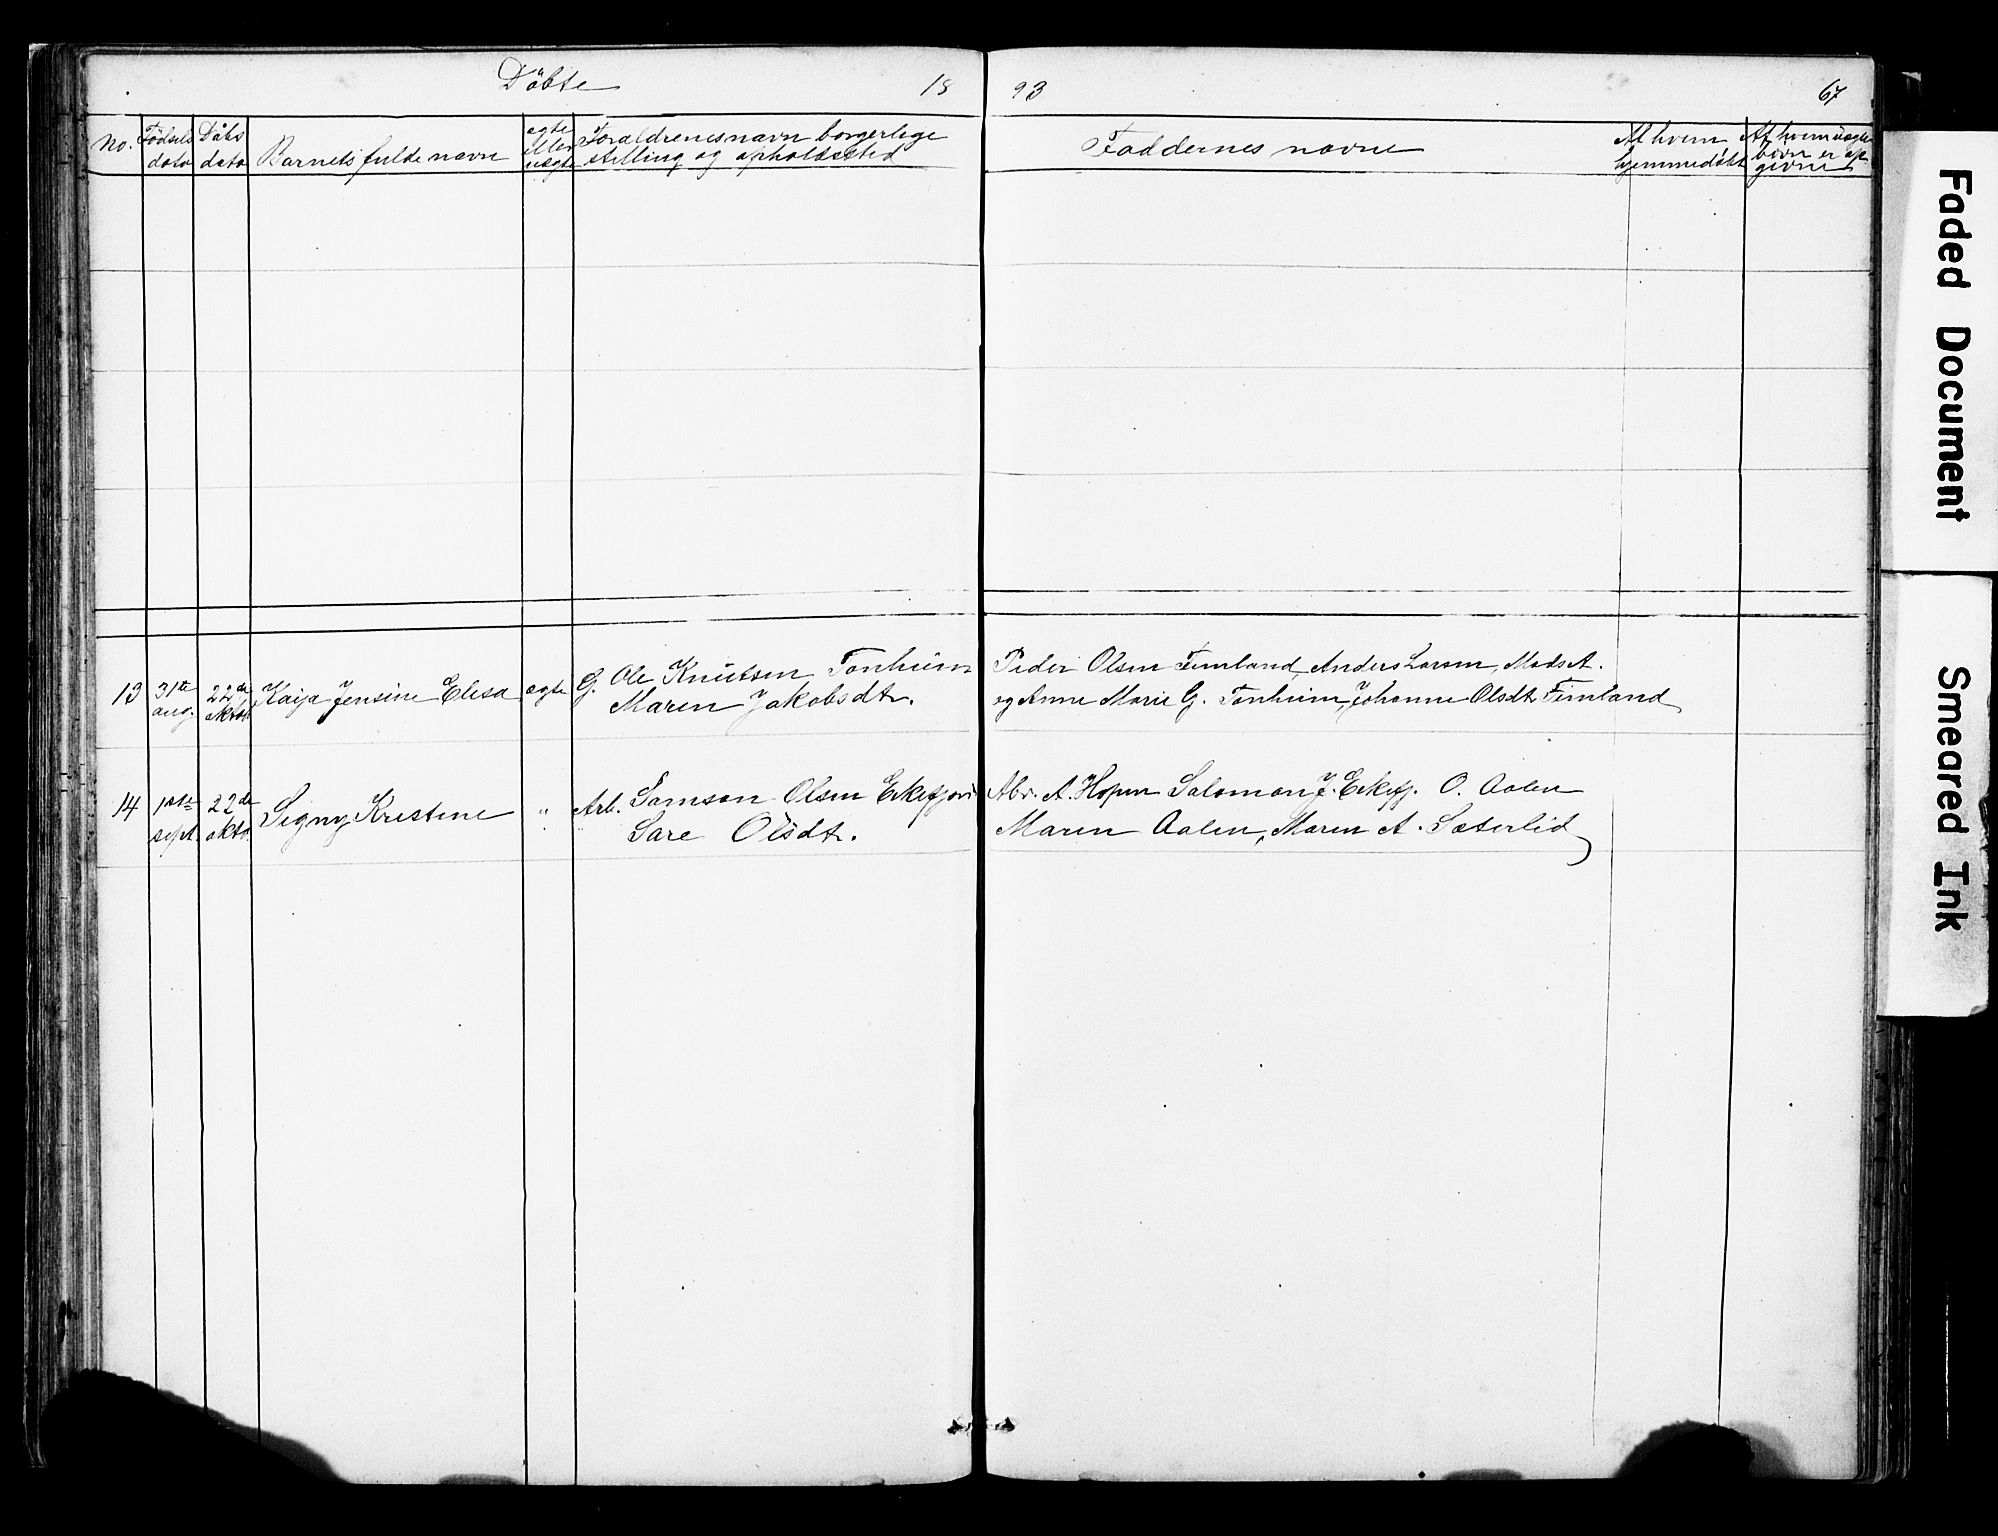 Döbte 18 93 67
No. Födsels dato Döbs dato Barnets fulde navn ægte eller uægte Foraldrenes navn borgerlige stilling og opholdssted Faddernes navne Af hvem hjemmedöbt Af hvem uægte börn er op givne
13 31te aug. 22de oktob. Kaija Jensine Elisa ægte G. Ole Knutsen Tonheim Peder Olsen Fimland, Anders Larsen, Mads A.
Maren Jakobsdtr. og Anne Marie G. Tonheim, Johanne Olsdtr Fimland
14 1ste sept. 22de oktb. Signy Kristine " Arb. Samson Olsen Eikefjord Abr. A. Hopen Salomon J. Eikefj. O. Aalen
Sare Olsdtr. Maren Aalen, Maren A. Sæterlid
Faded Document
Smeared Ink